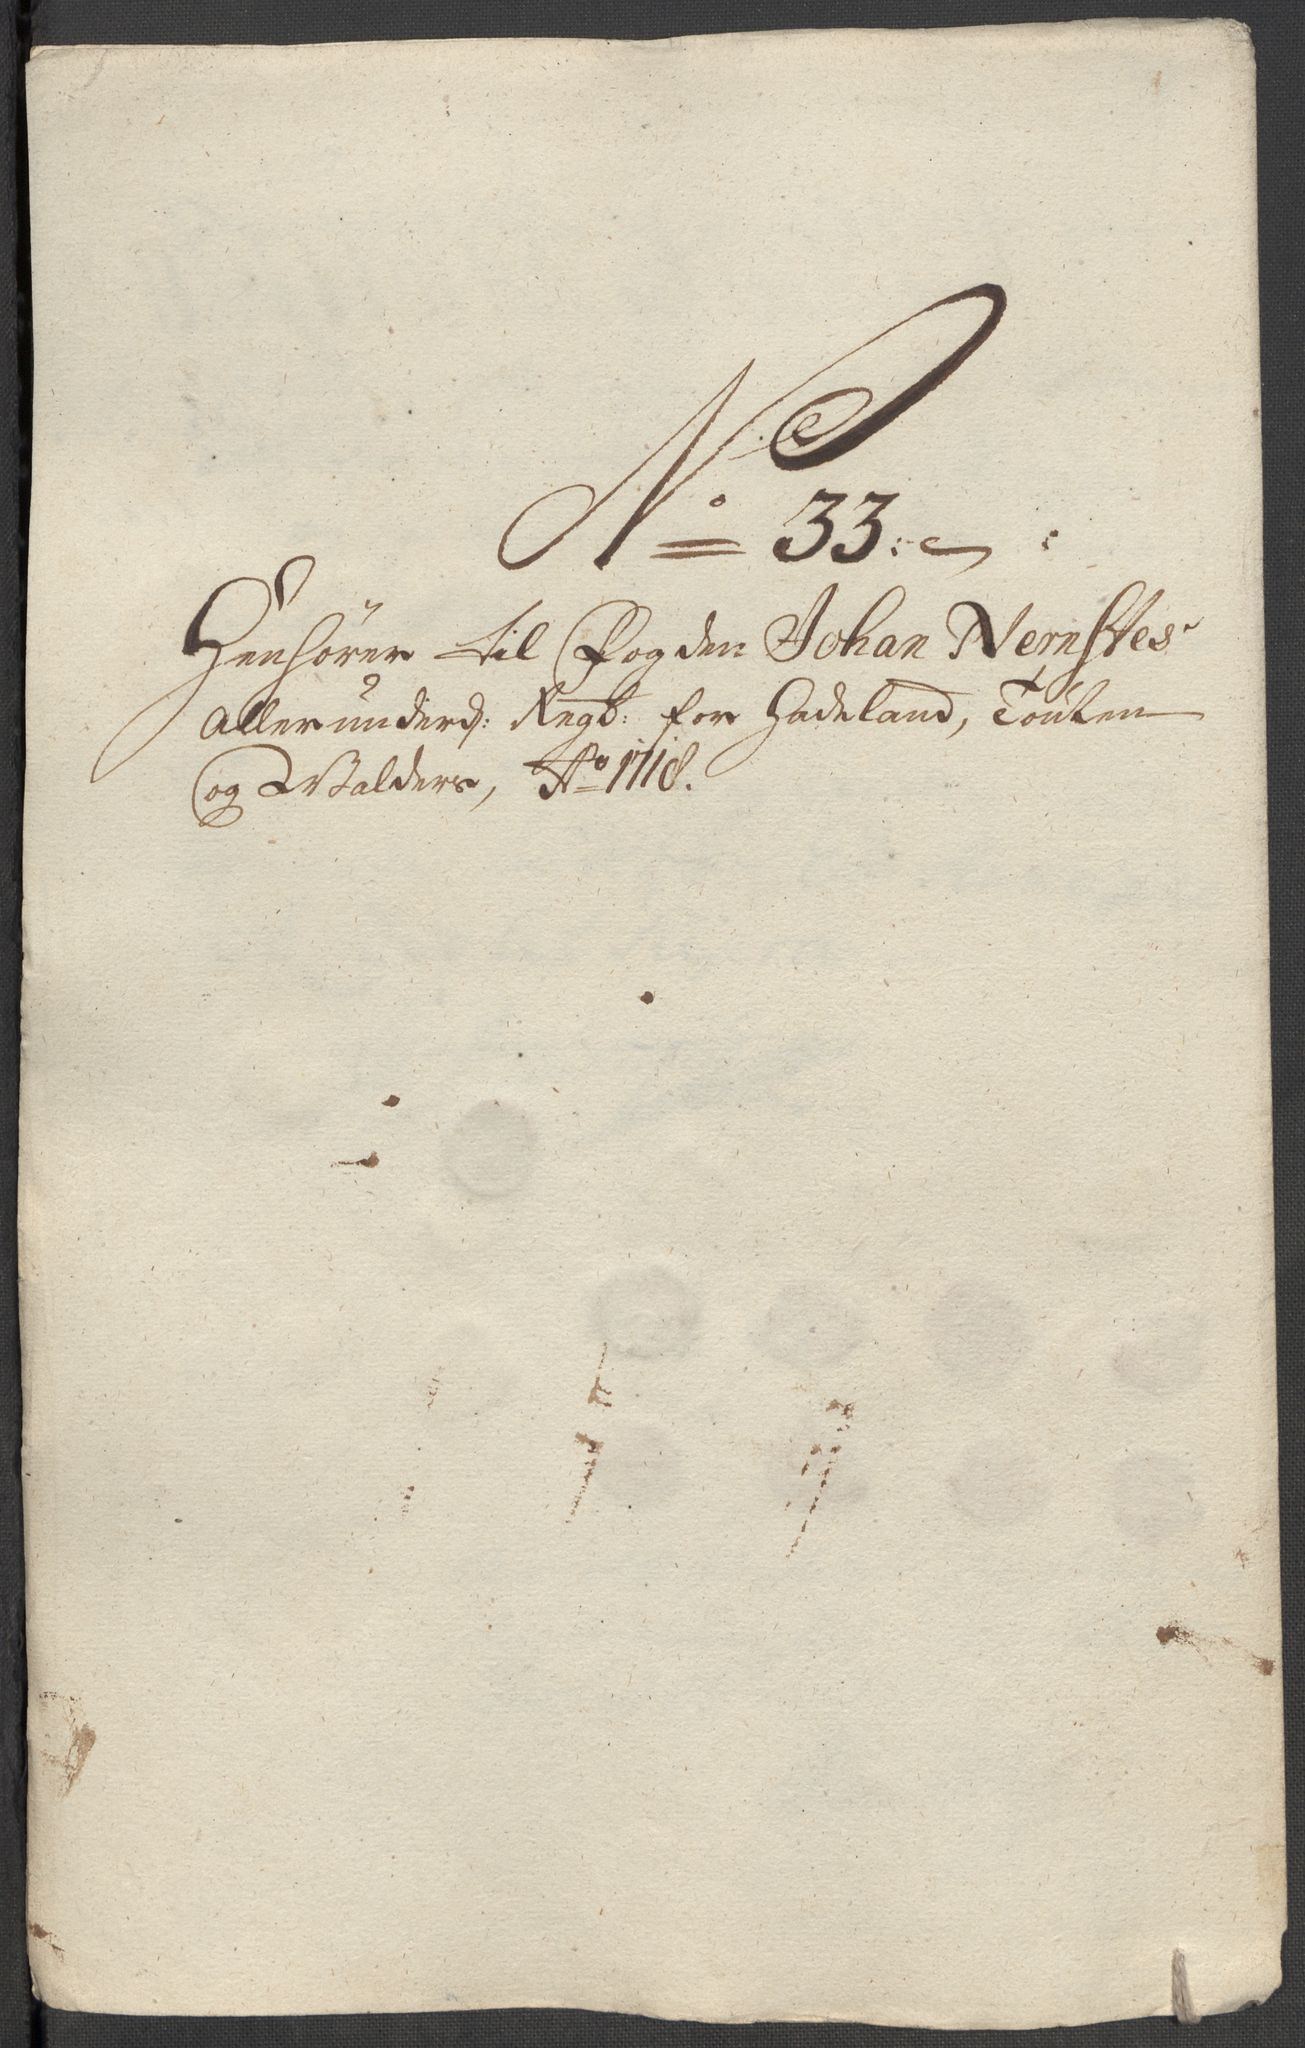 No 33:
Henhörer til Fogden Johan Nernstes
allerunderd: Regb: for Hadeland, Touten
og Walders, Ao 1718.